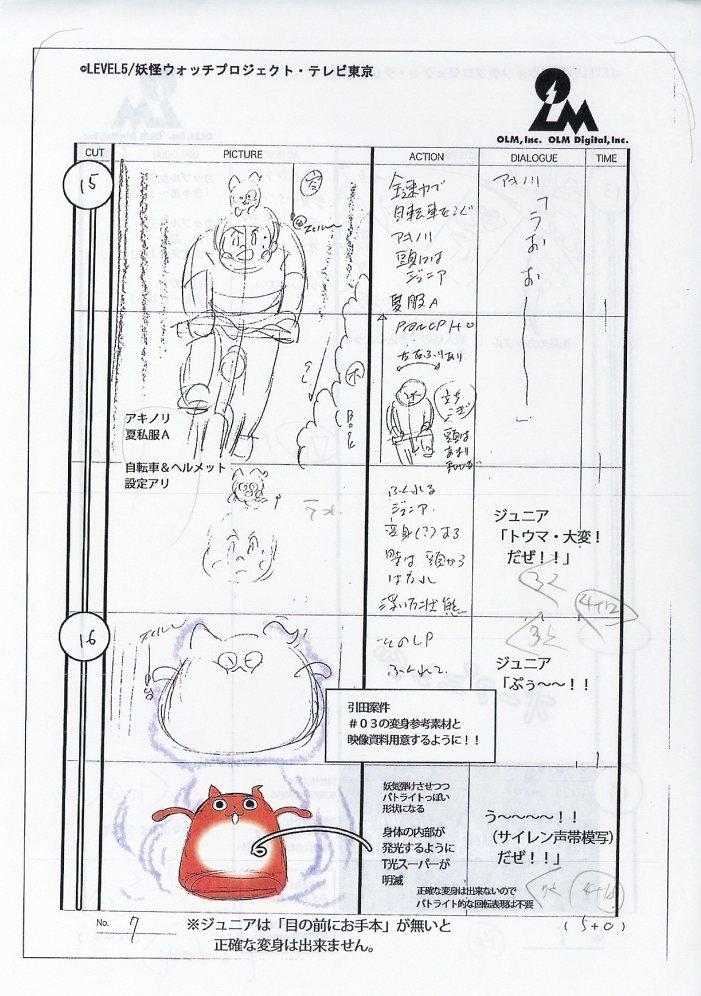 ©LEVEL5/妖怪ウォッチプロジェクト・テレビ東京
OLM, Inc. OLM Digital, Inc.
CUT PICTURE ACTION DIALOGUE TIME
15
全速力で
自転車をこぐ
アキノリ
頭には
ジュニア
夏服A
アキノリ
うおお
アキノリ
夏私服A
自転車&ヘルメット
設定アリ
ふくれる
ジュニア
変身(?)する
時は頭から
はなれ
浮いた状態
ジュニア
「トウマ・大変!
だぜ!!」
16
ふくれて
ジュニア
「ぷぅ~~!!
引田案件
#03の変身参考素材と
映像資料用意するように!!
妖気弾けさせつつ
パトライトっぽい
形状になる
身体の内部が
発光するように
T光スーパーが
明滅
正確な変身は出来ないので
パトライト的な回転表現は不要
う~~~~!!
(サイレン声帯模写)
だぜ!!」
No. 7
※ジュニアは「目の前にお手本」が無いと
正確な変身は出来ません。
(5+0)